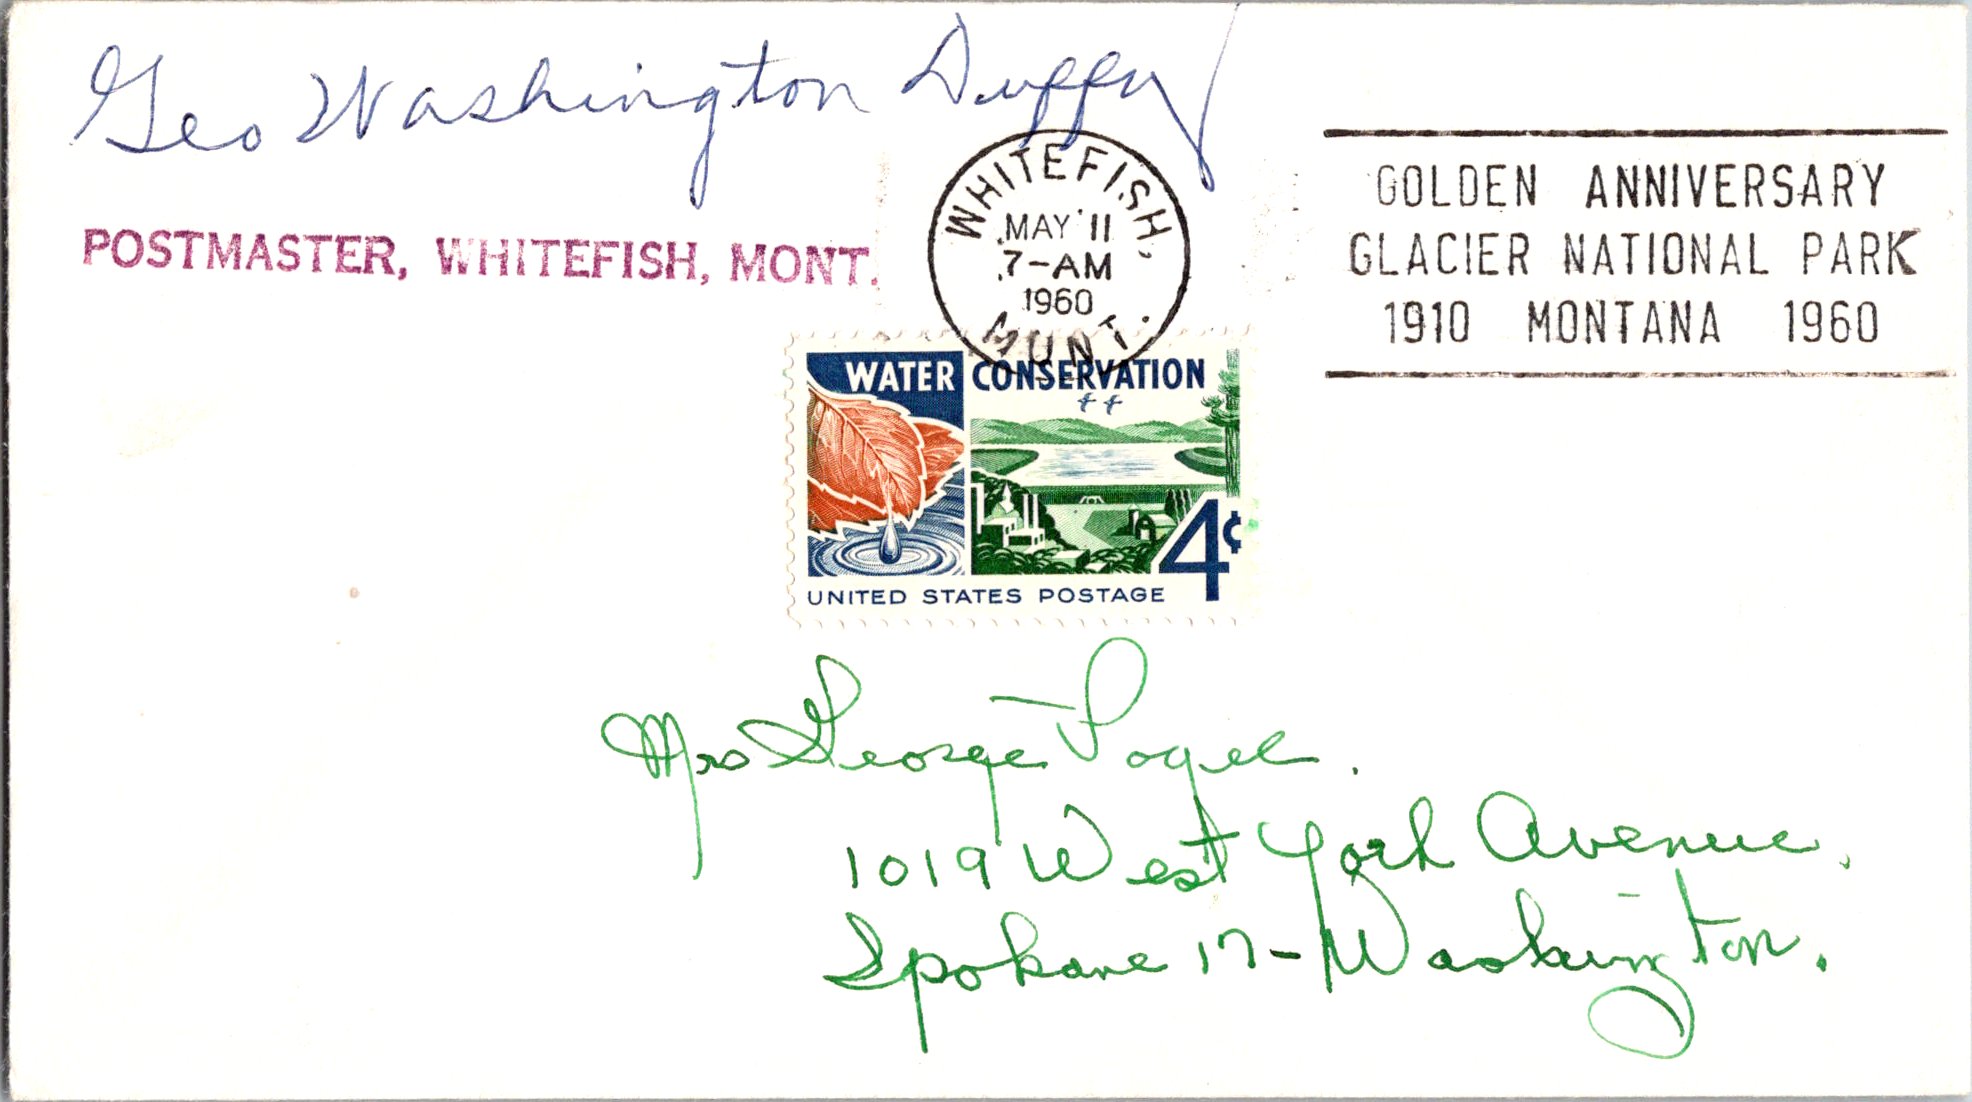 Geo Washington Duffy
POSTMASTER, WHITEFISH, MONT.
WHITEFISH,
MAY 11
7-AM
1960
MONT.
GOLDEN ANNIVERSARY
GLACIER NATIONAL PARK
1910 MONTANA 1960
WATER CONSERVATION
4¢
UNITED STATES POSTAGE
Mrs George
1019 West York Avenue.
Spokane 17-Washington.